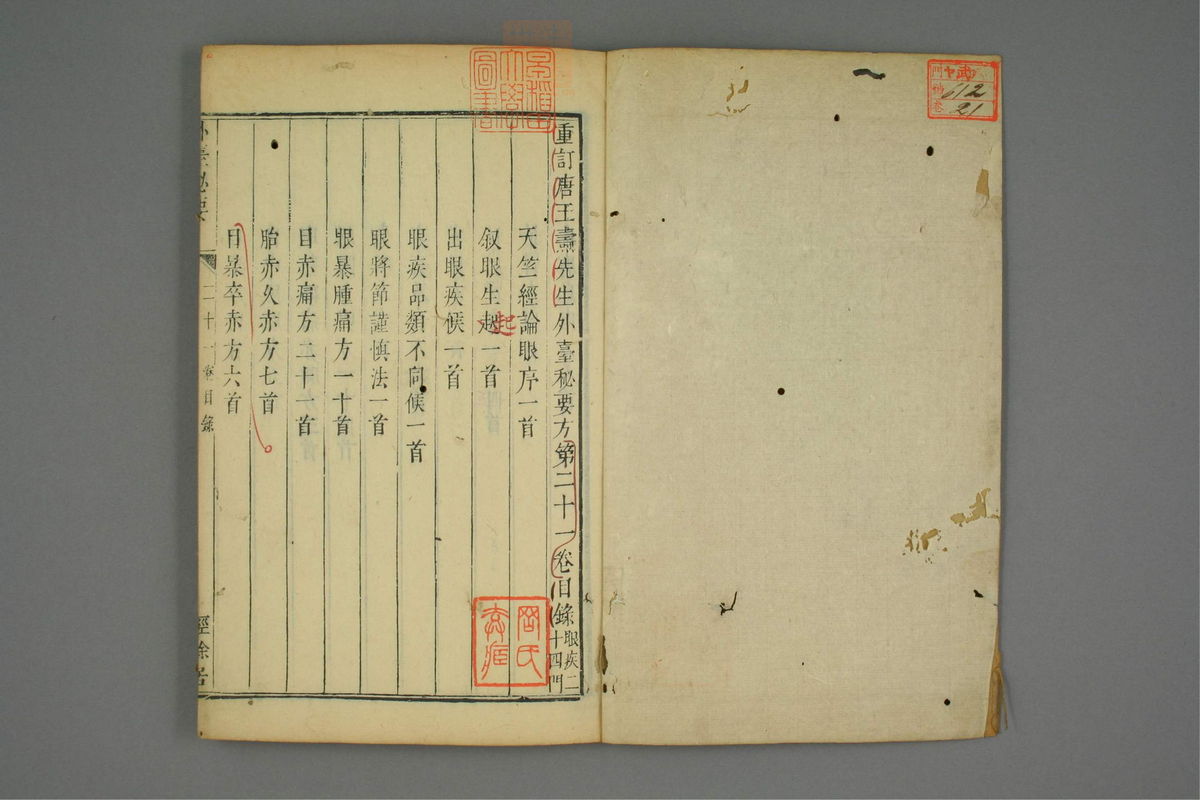 重訂唐王燾先生外臺秘要方第二十一卷目錄眼疾二十四門
天竺經論眼序一首
叙眼生起一首
出眼疾候一首
眼疾品類不同候一首
眼將節謹慎法一首
眼暴腫痛方一十首
目赤痛方二十一首
胎赤久赤方七首
目暴卒赤方六首
二十一卷目錄
經餘居
早稲田大學圖書
612
21